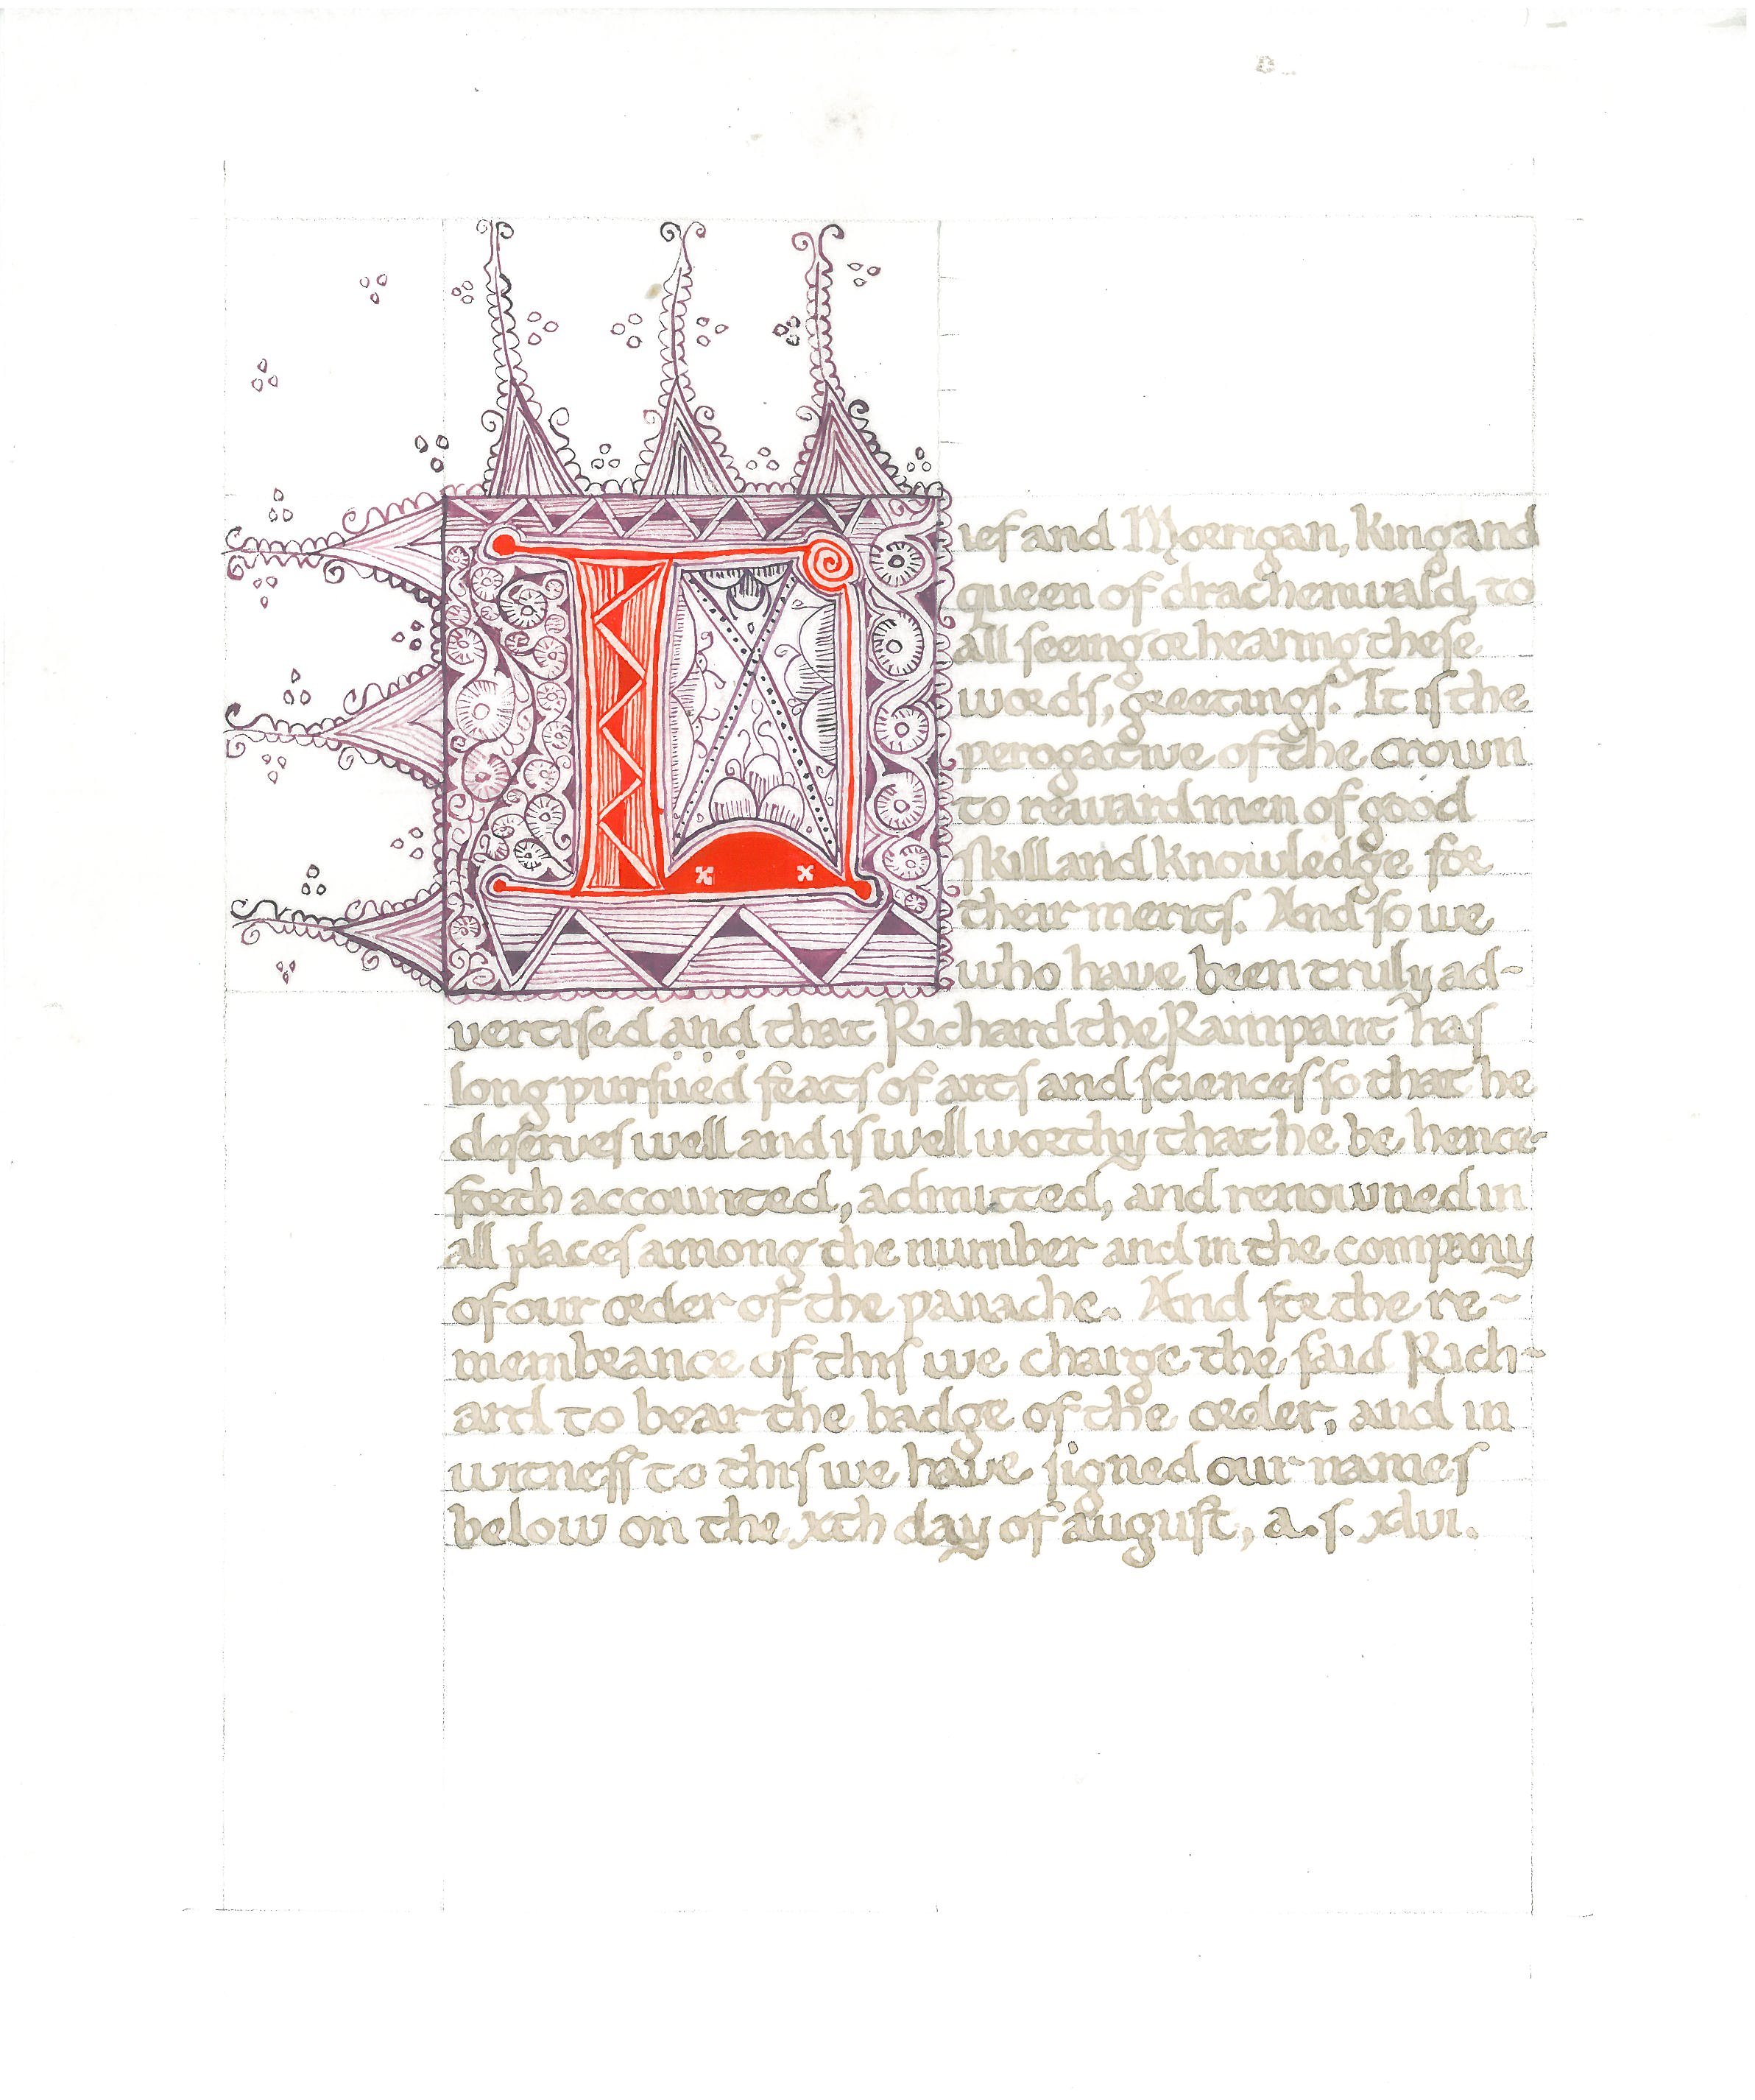 Lief and Moerrigan, King and
queen of drachenwald, to
all seeing or hearing theſe
wordſ, greetingſ. It iſ the
perogative of the crown
to reward men of good
ſkill and knowledge for
their meritſ. And ſo we
who have been truly ad~
vertiſed and that Richard the Rampant haſ
long purſued featſ of artſ and ſcienceſ ſo that he
deſerveſ well and iſ well worthy that he be hence~
forth accounted, admitted, and renowned in
all placeſ among the number and in the company
of our order of the panache. And for the re~
membrance of thiſ we charge the ſaid Rich~
ard to bear the badge of the order, and in
witneſſ to thiſ we have ſigned our nameſ
below on the xth day of auguſt, a.ſ. xlvi.